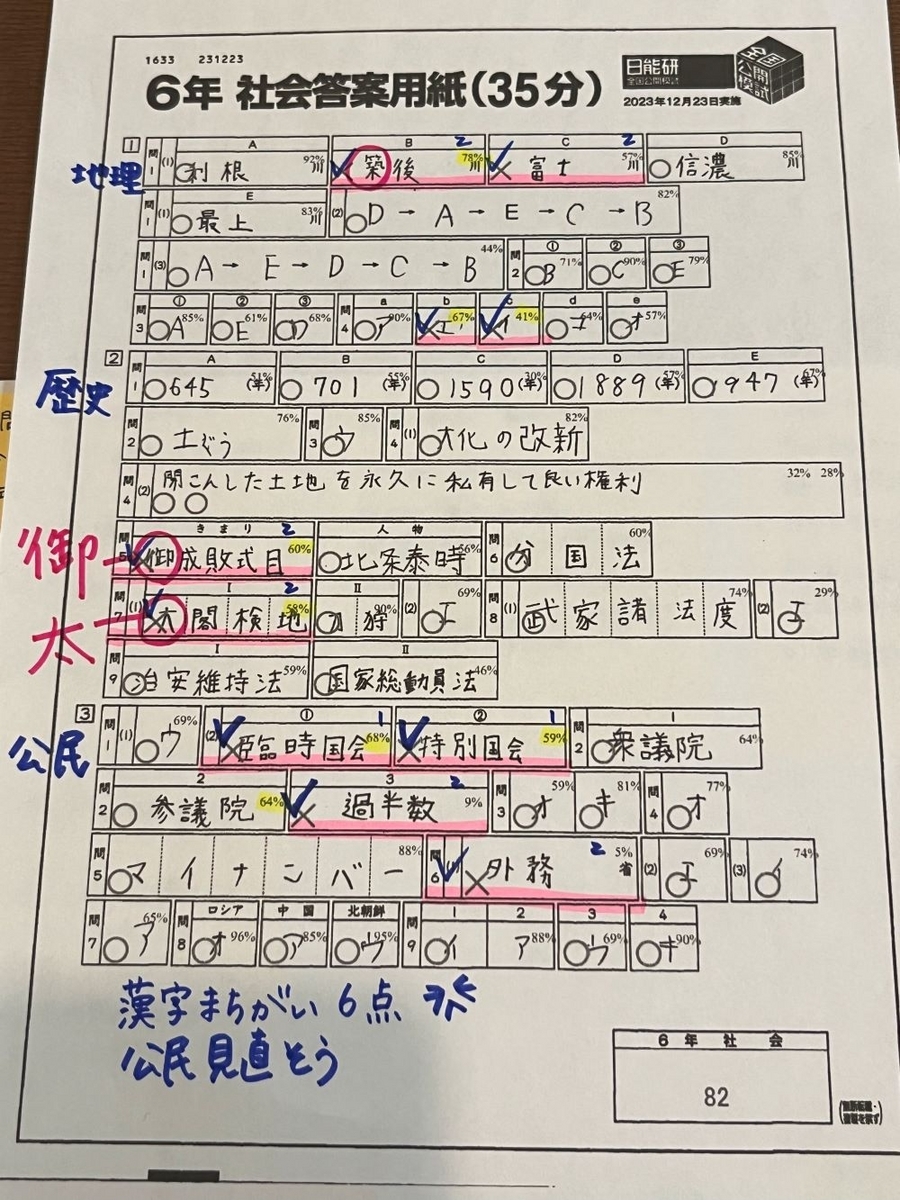 1633 231223
6年 社会答案用紙(35分)
日能研
全国公開模試
全国公開模試
2023年12月23日実施
地理
1 問1 (1) A 利根 川 92% B 築後 川 78% 2 C 富士 川 57% 2 D 信濃 川 85%
問1 (1) E 最上 川 83% (2) D → A → E → C → B 82%
問1 (3) A → E → D → C → B 44% 問2 ① B 71% ② C 90% ③ E 79%
問3 ① A 85% ② E 61% ③ D 68% 問4 a ア 90% b エ 67% c イ 41% d エ 64% e オ 57%
歴史
2 問1 A 645 (年) 51% B 701 (年) 55% C 1590 (年) 30% D 1889 (年) 57% E 1947 (年) 67%
問2 土ぐう 76% 問3 ウ 85% 問4 (1) 大化の改新 82%
問4 (2) 開こんした土地を永久に私有して良い権利 32% 28%
御 問5 きまり 2 御成敗式目 60% 人物 北条泰時 56% 問6 分国法 60%
太 問7 (1) I 2 太閤検地 58% II 刀狩 90% (2) エ 69% 問8 (1) 武家諸法度 74% (2) エ 29%
問9 I 治安維持法 59% II 国家総動員法 46%
公民
3 問1 (1) ウ 69% (2) ① 1 臨時国会 68% ② 1 特別国会 59% 問2 1 衆議院 64%
問2 2 参議院 64% 3 2 過半数 9% 問3 オ 59% キ 81% 問4 オ 77%
問5 マイナンバー 88% 問6 (1) 外務 省 2 5% (2) エ 69% (3) イ 74%
問7 ア 65% 問8 ロシア オ 96% 中国 ア 85% 北朝鮮 ウ 95% 問9 1 イ 2 ア 88% 3 ウ 69% 4 キ 90%
漢字まちがい 6点
公民見直そう
6年社会
82